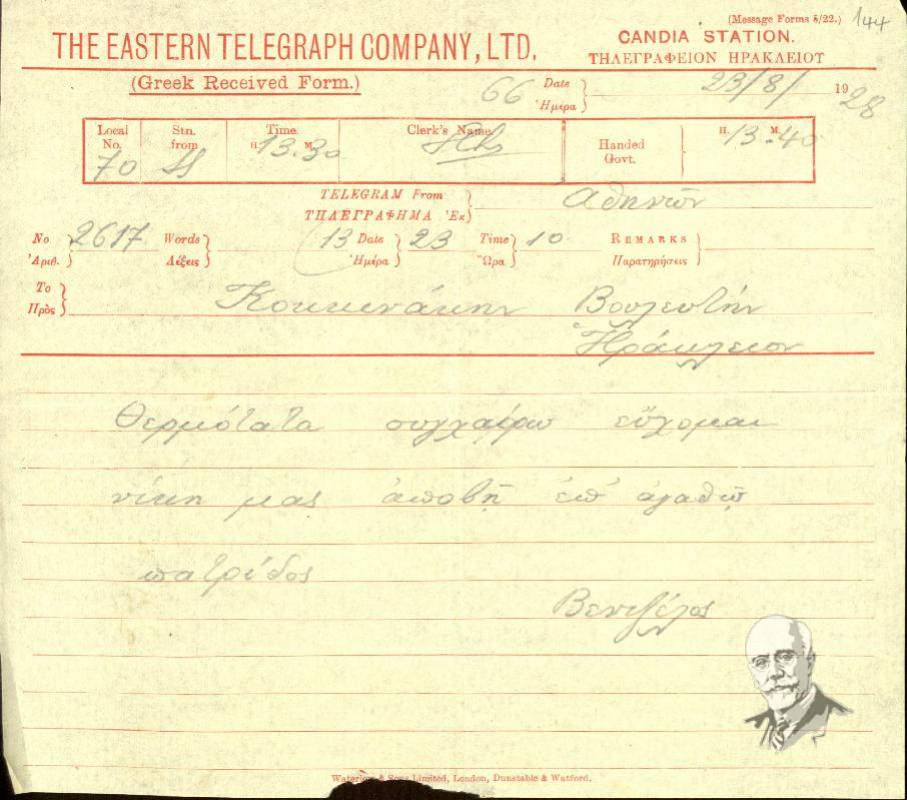 (Message Forms 5/22.) 144
THE EASTERN TELEGRAPH COMPANY, LTD.
CANDIA STATION.
ΤΗΛΕΓΡΑΦΕΙΟΝ ΗΡΑΚΛΕΙΟΥ
(Greek Received Form.)
66 Date Ἡμέρα 23/8/ 1928
Local No. 70 Stn. from Time H. M. 13.30 Clerk's Name Handed Govt. H. M. 13.40
TELEGRAM From
ΤΗΛΕΓΡΑΦΗΜΑ Ἐκ Αθηνῶν
No Ἀριθ. 2617 Words Λέξεις 13 Date Ἡμέρα 23 Time Ὥρα 10 REMARKS Παρατηρήσεις
To Πρὸς Κοκκινάκην Βουλευτήν
Ἡράκλειον
Θερμότατα συγχαίρω εὔχομαι
νίκη μας ἀποβῇ ἐπ' ἀγαθῷ
πατρίδος
Βενιζέλος
Waterlow & Sons Limited, London, Dunstable & Watford.